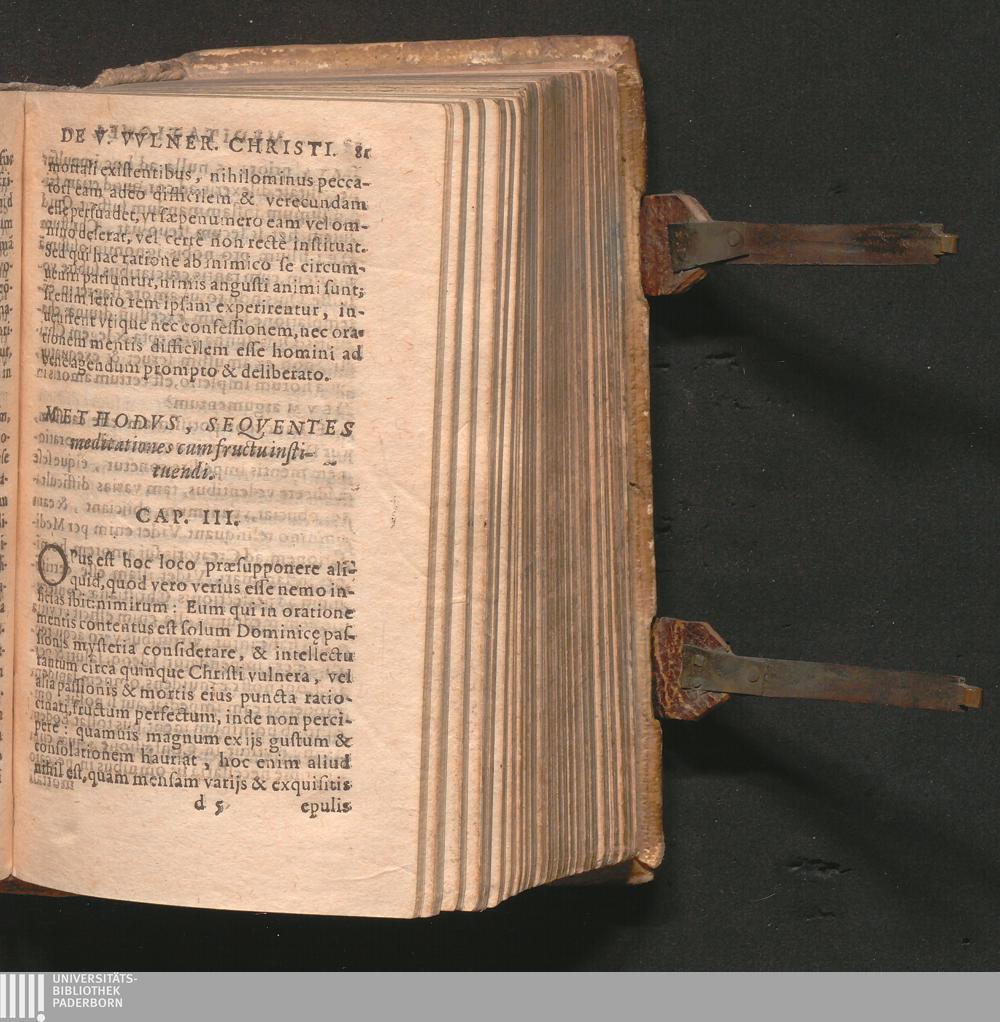 DE V. VVLNER. CHRISTI. 81
mortali existentibus, nihilominus pecca-
tori eam adeo difficilem & verecundam
esse persuadet, vt sæpenumero eam vel om-
nino deserat, vel certe non recte instituat.
Sed qui hac ratione ab inimico se circum-
ueniri patiuntur, nimis angusti animi sunt;
si enim serio rem ipsam experirentur, in-
uenissent vtique nec confessionem, nec ora-
tionem mentis difficilem esse homini ad
bene agendum prompto & deliberato.
METHODVS, SEQVENTES
meditationes cum fructu insti-
tuendi.
CAP. III.
OPus est hoc loco præsupponere ali-
quid, quod vero verius esse nemo in-
ficias ibit: nimirum: Eum qui in oratione
mentis contentus est solum Dominicę pas-
sionis mysteria considerare, & intellectu
tantum circa quinque Christi vulnera, vel
alia passionis & mortis eius puncta ratio-
cinari, fructum perfectum, inde non perci-
pere: quamuis magnum ex ijs gustum &
consolationem hauriat, hoc enim aliud
nihil est, quam mensam varijs & exquisitis
d 5 epulis
UNIVERSITÄTS-
BIBLIOTHEK
PADERBORN